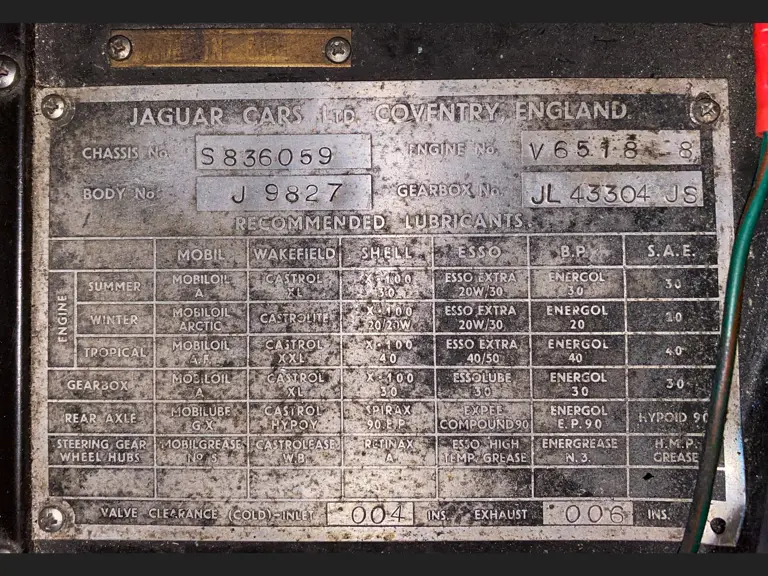 JAGUAR CARS LTD COVENTRY ENGLAND.
CHASSIS No. S836059 ENGINE No. V6518-8
BODY No. J 9827 GEARBOX No. JL 43304 JS
RECOMMENDED LUBRICANTS.
MOBIL WAKEFIELD SHELL ESSO B.P. S.A.E.
ENGINE
SUMMER MOBILOIL A CASTROL XL X-100 30 ESSO EXTRA 20W/30 ENERGOL 30 30
WINTER MOBILOIL ARCTIC CASTROLITE X-100 20/20W ESSO EXTRA 20W/30 ENERGOL 20 20
TROPICAL MOBILOIL A.F. CASTROL XXL X-100 40 ESSO EXTRA 40/50 ENERGOL 40 40
GEARBOX MOBILOIL A CASTROL XL X-100 30 ESSOLUBE 30 ENERGOL 30 30
REAR AXLE MOBILUBE G.X. CASTROL HYPOY SPIRAX 90.E.P. EXPEE COMPOUND 90 ENERGOL E.P. 90 HYPOID 90
STEERING GEAR WHEEL HUBS MOBILGREASE No. 5 CASTROLEASE W.B. RETINAX A ESSO. HIGH TEMP. GREASE ENERGREASE N.3. H.M.P. GREASE
VALVE CLEARANCE (COLD)-INLET .004 INS. EXHAUST .006 INS.